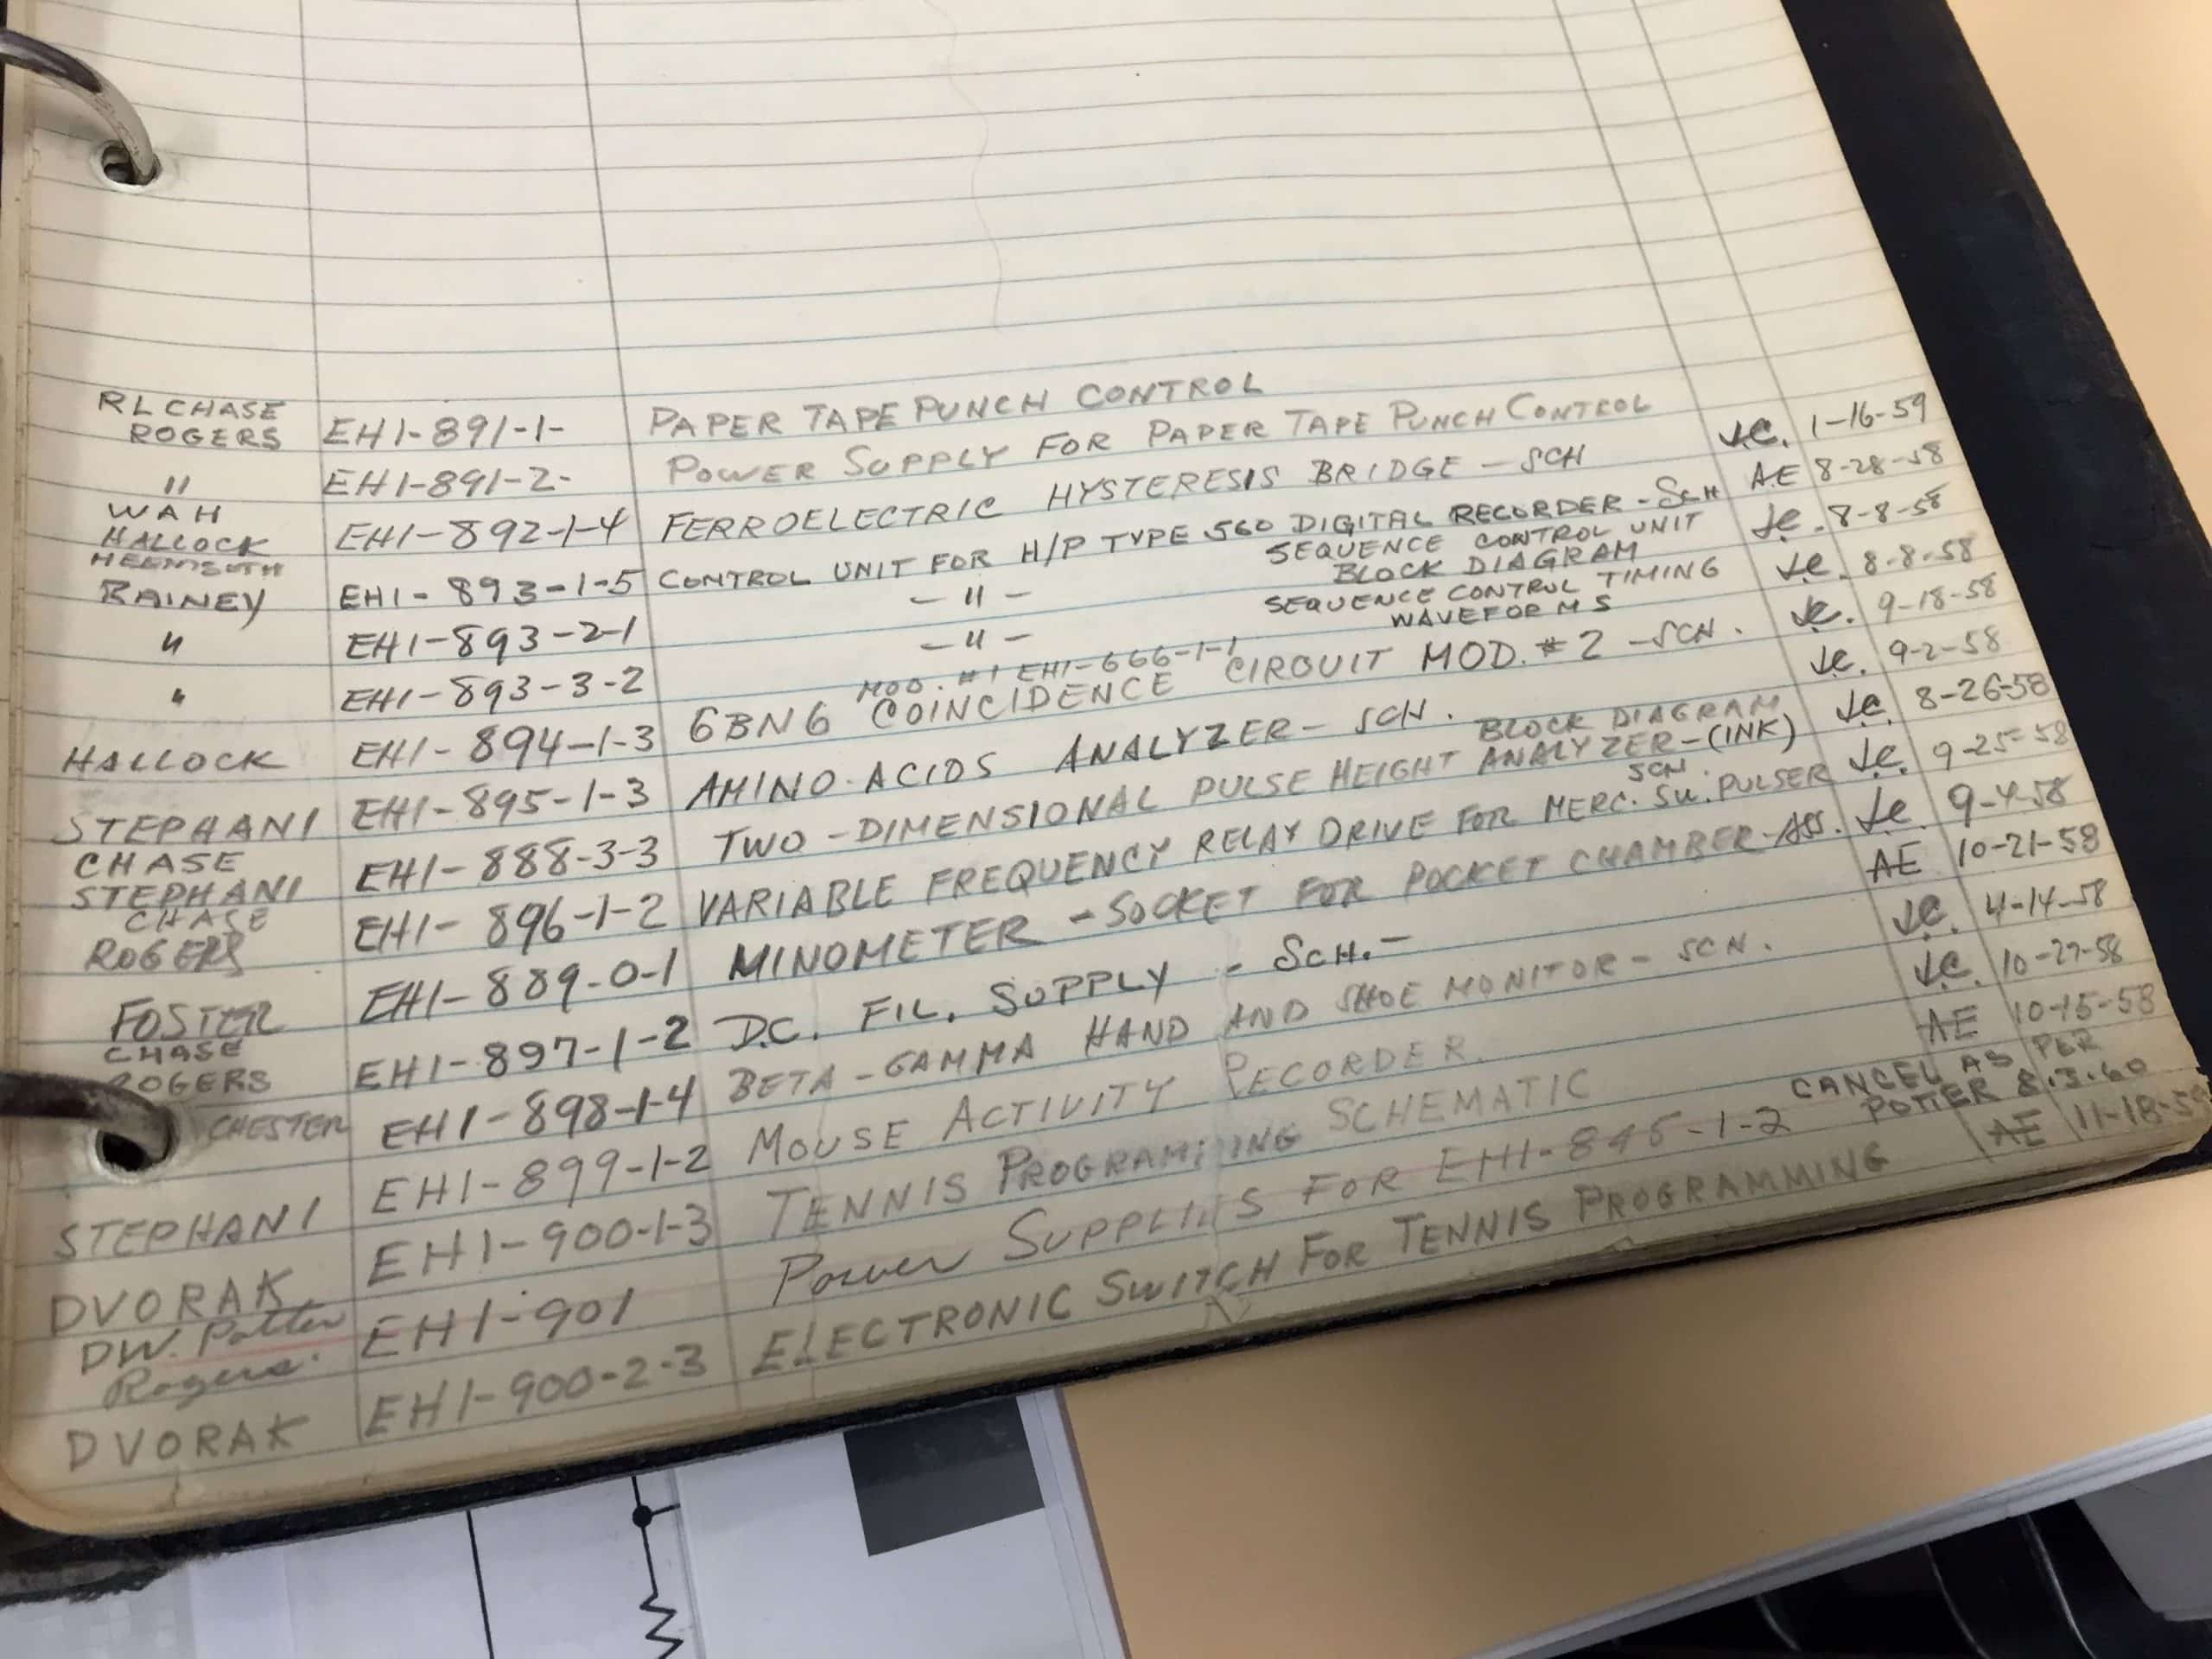 RL CHASE
ROGERS EHI-891-1- PAPER TAPE PUNCH CONTROL
" EHI-891-2- POWER SUPPLY FOR PAPER TAPE PUNCH CONTROL
WAH
HALLOCK EHI-892-1-4 FERROELECTRIC HYSTERESIS BRIDGE - SCH J.C. 1-16-59
RAINEY EHI-893-1-5 CONTROL UNIT FOR H/P TYPE 560 DIGITAL RECORDER - SCH AE 8-28-58
SEQUENCE CONTROL UNIT
" EHI-893-2-1 - " - BLOCK DIAGRAM J.C. 8-8-58
SEQUENCE CONTROL TIMING
" EHI-893-3-2 - " - WAVEFORMS J.C. 8-8-58
MOD. #1 EHI-666-1-1
HALLOCK EHI-894-1-3 6BN6 COINCIDENCE CIRCUIT MOD. #2 - SCH. J.C. 9-18-58
STEPHANI EHI-895-1-3 AMINO-ACIDS ANALYZER - SCH. J.C. 9-2-58
CHASE BLOCK DIAGRAM
STEPHANI EHI-888-3-3 TWO-DIMENSIONAL PULSE HEIGHT ANALYZER-(INK) J.C. 8-26-58
CHASE SCH.
ROGERS EHI-896-1-2 VARIABLE FREQUENCY RELAY DRIVE FOR MERC. SW. PULSER J.C. 9-25-58
FOSTER EHI-889-0-1 MINOMETER - SOCKET FOR POCKET CHAMBER-ASS. J.C. 9-4-58
CHASE
ROGERS EHI-897-1-2 D.C. FIL. SUPPLY - SCH. - AE 10-21-58
CHESTER EHI-898-1-4 BETA-GAMMA HAND AND SHOE MONITOR - SCH. J.C. 4-14-58
STEPHANI EHI-899-1-2 MOUSE ACTIVITY RECORDER. J.C. 10-27-58
DVORAK EHI-900-1-3 TENNIS PROGRAMING SCHEMATIC AE 10-15-58
DW. Potter CANCEL AS PER
Rogers. EHI-901 Power SUPPLIES FOR EHI-845-1-2 POTTER 8.3.60
DVORAK EHI-900-2-3 ELECTRONIC SWITCH FOR TENNIS PROGRAMMING AE 11-18-58